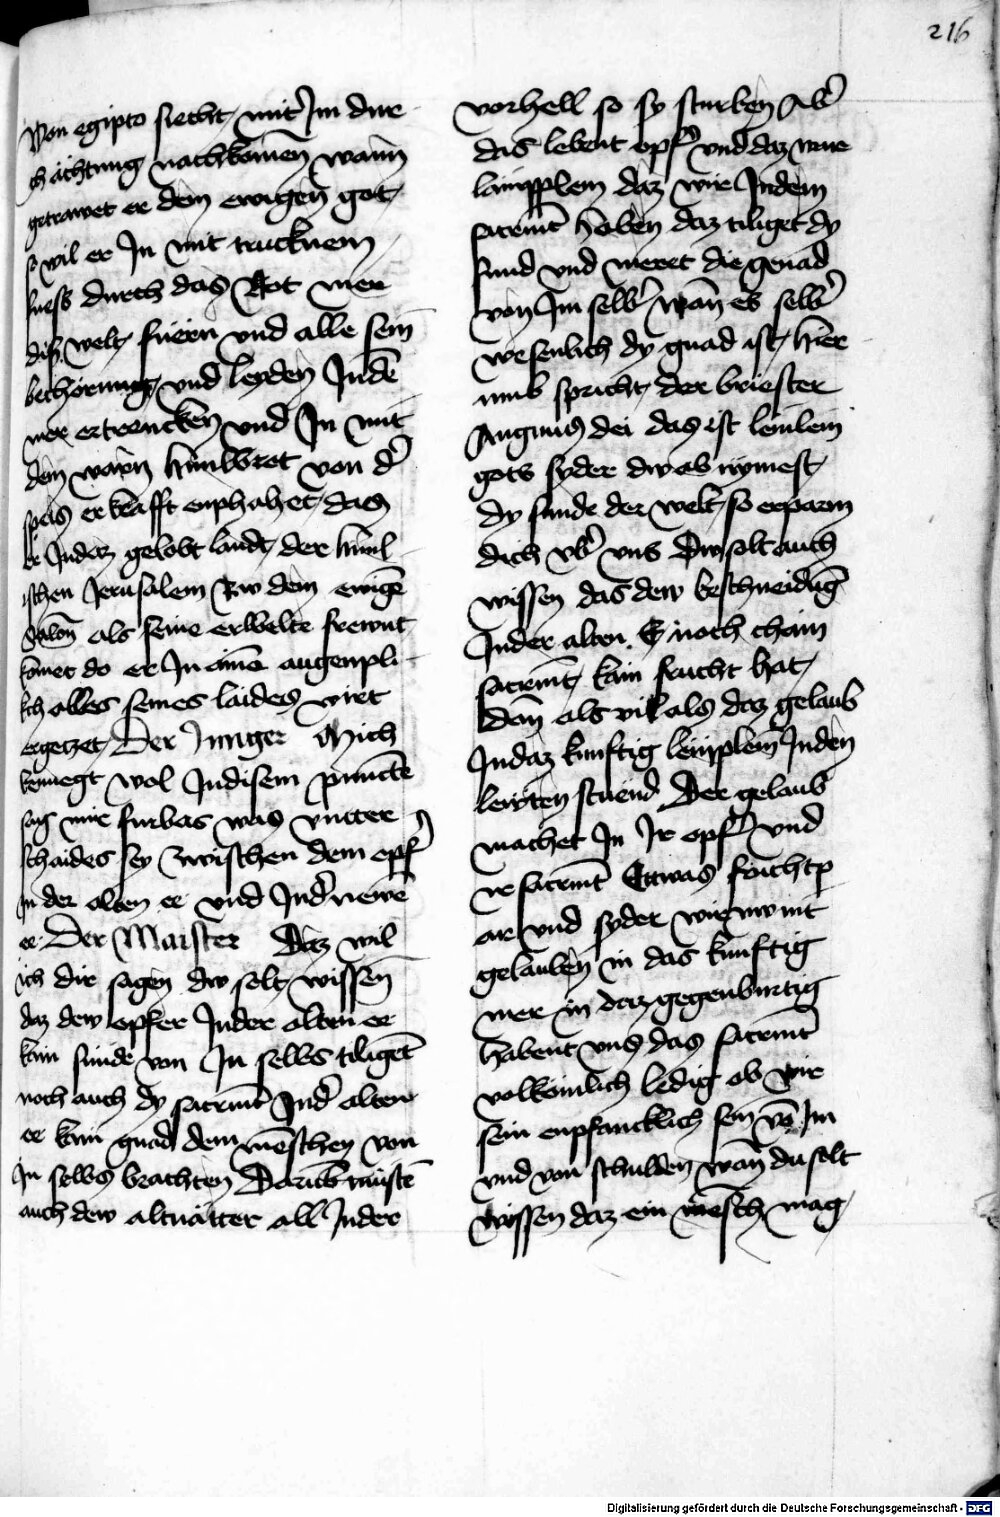 216
Von egipto siecht mit Im dur
ch ächtung nachkomen wann
getrawet er dem ewigen got
so wil er In mit trucknem
fuess durch das Rot mer
diser welt füern vnd alle sein
bechorung vnd leyden Inde
mer ertrencken vnd In mit
dem warn himlbrot von der
speis er krafft enphahet das
er Indaz gelobt landt der himl
ischen Jerusalem Zw dem ewigē
Salon als seine erwelte frewnt
komet do er In aimē augenpli
kch alles seines laides wirt
ergetzet Der Junger Mich
benuegt wol Indisem puncte
sag mir furbas was vnter
schaides sey zwischen dem opfer
In der alten ee vnd Inder newē
ee Der Maister Daz wil
ich dir sagen dw solt wissen
daz dew opfer Inder alten ee
kain sünde von In selbs tiligetē
noch auch dy sacrmēt Inder alten
ee kain gnad dem mēschen von
In selbs brachten Darūb mustē
auch dew altuätter all Inder
vorhell so sy sturben Aber
das lebent opfer vnd daz newe
lämpplem daz wir Indem
sacrmēt haben daz tiliget dy
sund vnd meret die genad
von Im selber wan es selber
wesenlich dy gnad ist hier
umb spricht der briester
Angnus dei das ist lemlein
gots syder dw abnymest
dy sunde der welt so erparm
dich vber vns Dw solt auch
wissen das dew beschneidūg
Inder alten E noch chain
sacrmēt kain frucht hat
dan als vil als daz gelaub
Indaz kunftig lempplem Inden
lewten stuend Der gelaub
machet In Ir opfer vnd
ir sacrmēt Ettwas fruchtp
ar vnd syder wir nw nit
gelauben in das kunftig
mer in daz gegenburtig
habent vns das sacrmēt
volkomlich ledig ob wir
sein enpfancklich sein vō Im
vnd von schulden wan du solt
wissen daz ein mēsch mag
Digitalisierung gefördert durch die Deutsche Forschungsgemeinschaft - DFG